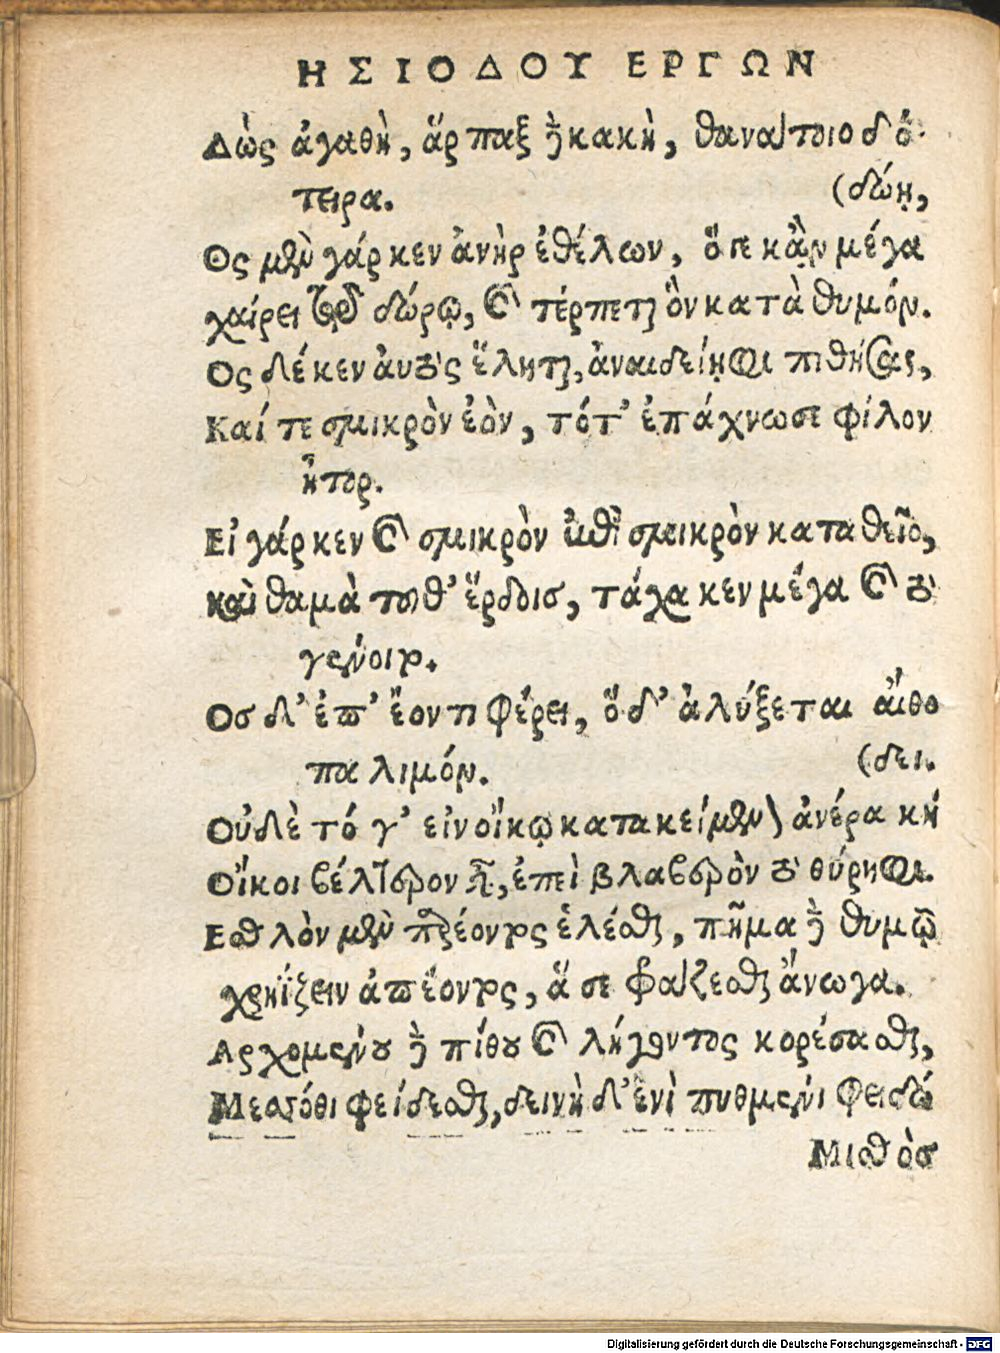 ΗΣΙΟΔΟΥ ΕΡΓΩΝ
Δὼς ἀγαθὴ, ἅρπαξ δὲ κακὴ, θανάτοιο δό-
τειρα. (δώῃ,
Ος μὲν γάρ κεν ἀνὴρ ἐθέλων, ὅτε κἂν μέγα
χαίρει τῷ δώρῳ, καὶ τέρπεται ὃν κατὰ θυμόν.
Ος δέ κεν αὐτὸς ἕληται, ἀναιδείῃφι πιθήσας,
Καί τε σμικρὸν ἐὸν, τότ' ἐπάχνωσε φίλον
ἦτορ.
Εἰ γάρ κεν καὶ σμικρὸν ἐπὶ σμικρὸν καταθεῖο,
καὶ θαμὰ τοῦθ' ἕρδοις, τάχα κεν μέγα καὶ τὸ
γένοιτο.
Οσ δ' ἐπ' ἐόντι φέρει, ὅδ' ἀλύξεται αἴθο
πα λιμόν. (δει.
Οὐδὲ τό γ' εἰν οἴκῳ κατακείμενον ἀνέρα κή
Οἴκοι βέλτερον εἶναι, ἐπεὶ βλαβερὸν τὸ θύρηφι.
Εσθλὸν μὲν παρεόντος ἑλέσθαι, πῆμα δὲ θυμῷ
χρηΐζειν ἀπεόντος, ἅ σε φράζεσθαι ἄνωγα.
Αρχομένου δὲ πίθου καὶ λήγοντος κορέσασθαι,
Μεσσόθι φείδεσθαι, δεινὴ δ' ἐνὶ πυθμένι φειδώ
Μισθὸσ
Digitalisierung gefördert durch die Deutsche Forschungsgemeinschaft - DFG